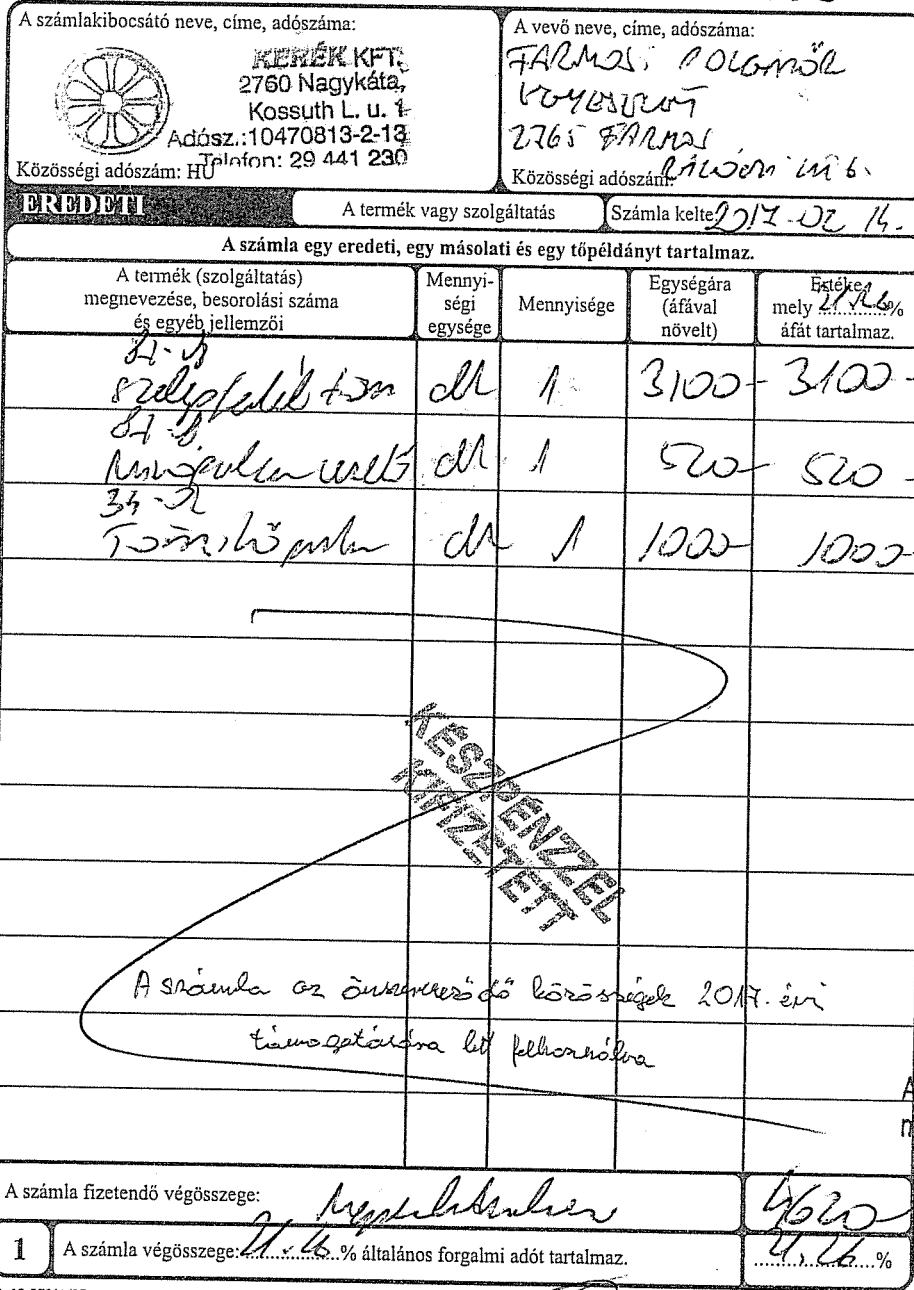 A számlakibocsátó neve, címe, adószáma:
KERÉK KFT.
2760 Nagykáta,
Kossuth L. u. 1
Adósz.:10470813-2-13
Telefon: 29 441 230
Közösségi adószám: HU
A vevő neve, címe, adószáma:
FARMOSI POLGÁRŐR
EGYESÜLET
2765 FARMOS
6.
Közösségi adószám:
EREDETI
A termék vagy szolgáltatás
Számla kelte: 2017-02 14.
A számla egy eredeti, egy másolati és egy tőpéldányt tartalmaz.
A termék (szolgáltatás) megnevezése, besorolási száma és egyéb jellemzői
Mennyi-ségi egysége
Mennyisége
Egységára (áfával növelt)
Értéke, mely 21.26% áfát tartalmaz.
szelepfedél töm db 1 3100- 3100-
db 1 520- 520-
Tömítő paszta db 1 1000- 1000-
KÉSZPÉNZZEL
KIFIZETETT
A számla az önszerveződő közösségek 2017. évi
támogatására lett felhasználva
A számla fizetendő végösszege: 4620
1 A számla végösszege: 21.26% általános forgalmi adót tartalmaz. 21.26%